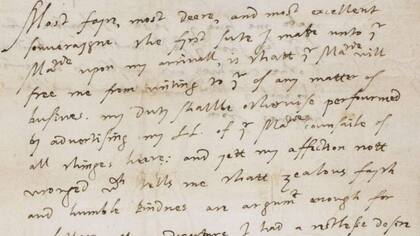 Most faire, most deere, and most excellent
souveraigne. the first sute I make unto yr
Matie upon my arrivall, is thatt yr Matie will
free me from writing to yr of any matter of
busines. my duty shalbe otherwise perfourmed
by advertising my LL. of yr Maties counsaile of
all thinges heere; and yett my affection nott
wronged wch tells me thatt zealous faith
and humble kindnes are argument enough for
I had a restlesse desire